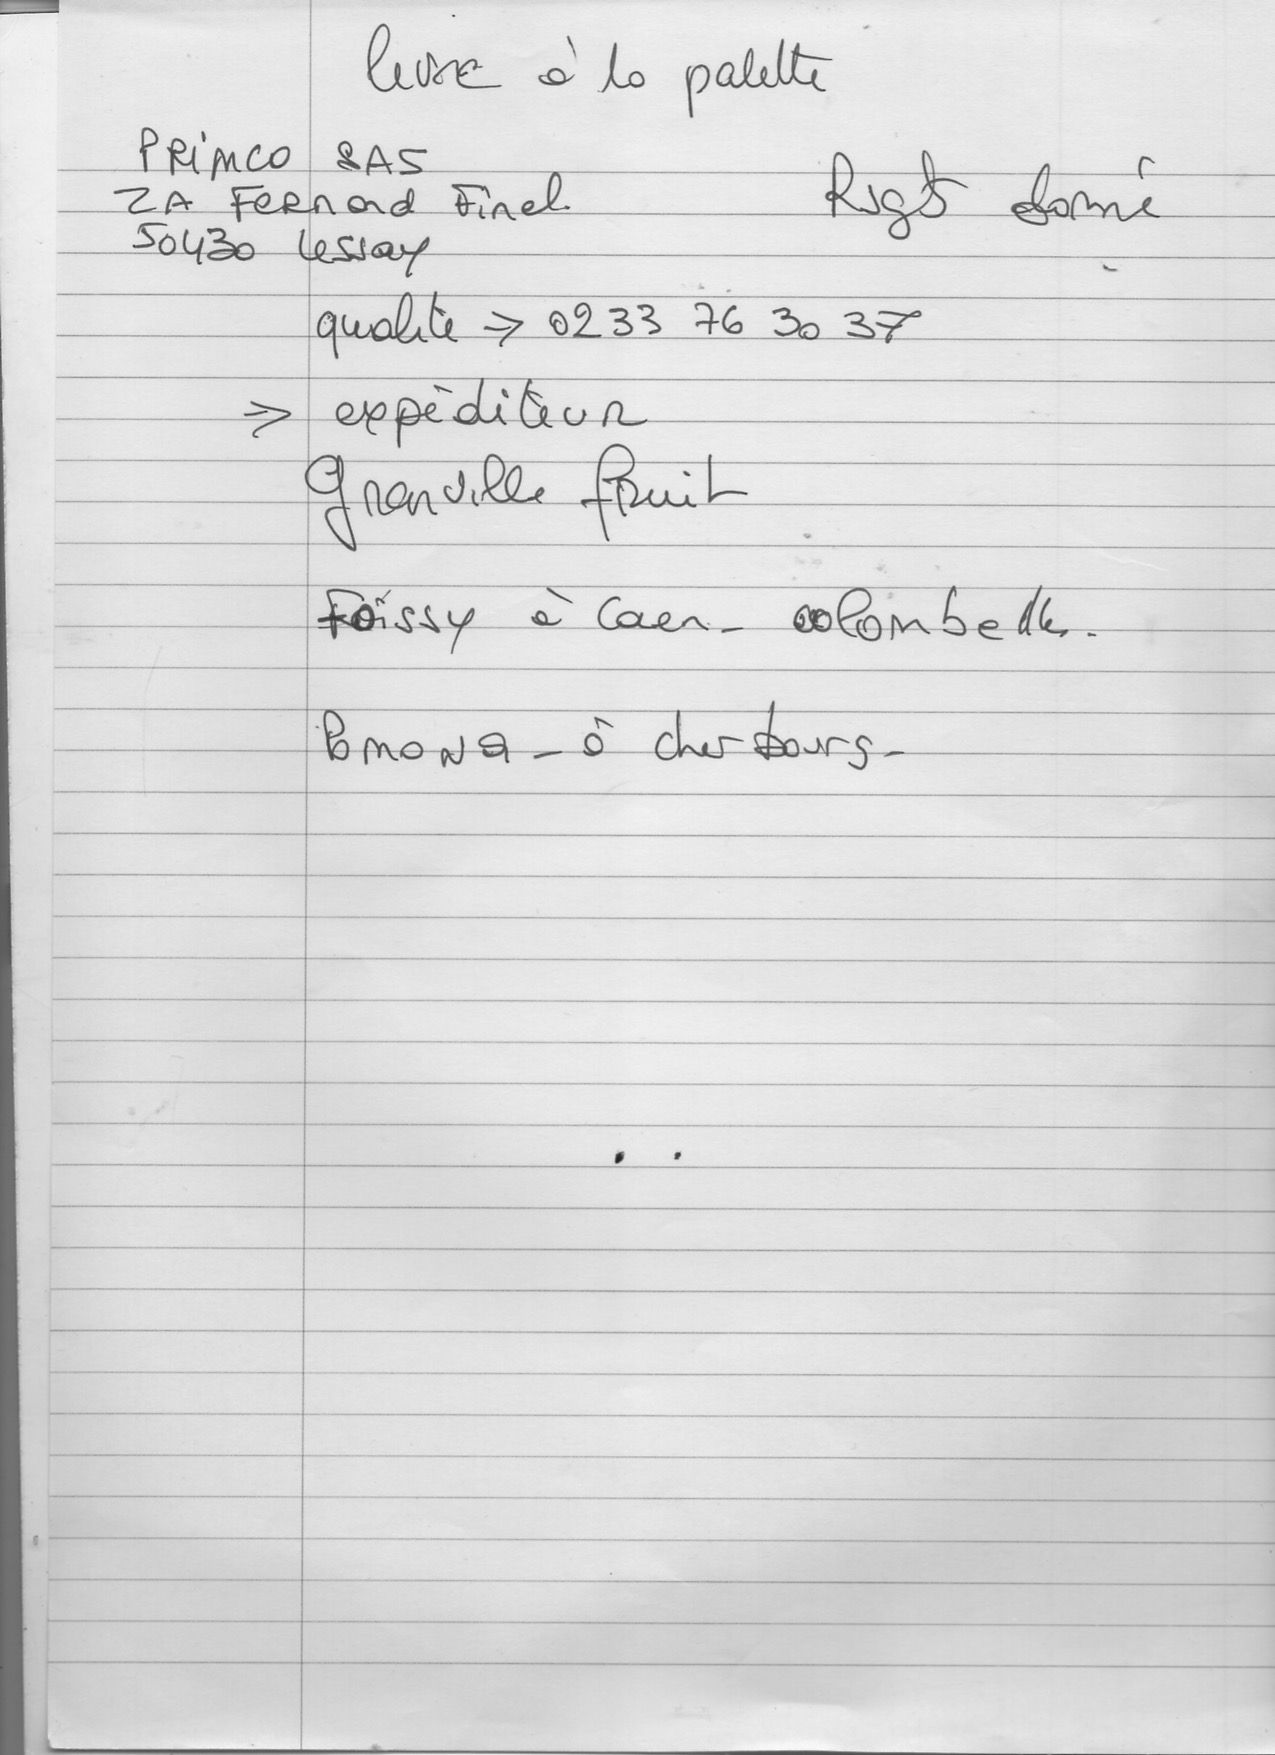 livre à la palette
PRIMCO SAS
ZA Fernand Finel
50430 Lessay
Rsgts donné
qualité => 02 33 76 30 37
=> expéditeur
Granville fruit
Foissy à Caen - colombelles.
Pomona - à cherbourg -